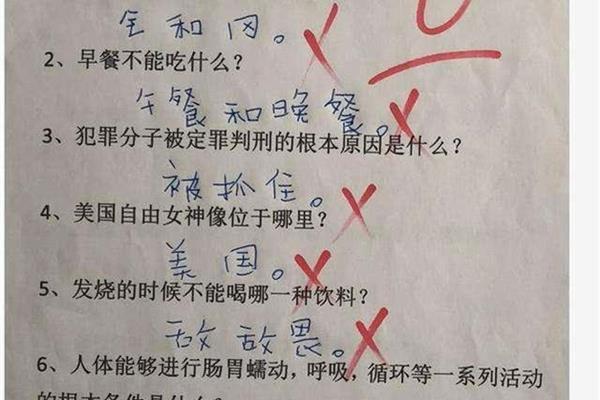 全和冈。
2、早餐不能吃什么？
午餐和晚餐。
3、犯罪分子被定罪判刑的根本原因是什么？
被抓住。
4、美国自由女神像位于哪里？
美国。
5、发烧的时候不能喝哪一种饮料？
敌敌畏。
6、人体能够进行肠胃蠕动，呼吸，循环等一系列活动
的根本条件是什么？